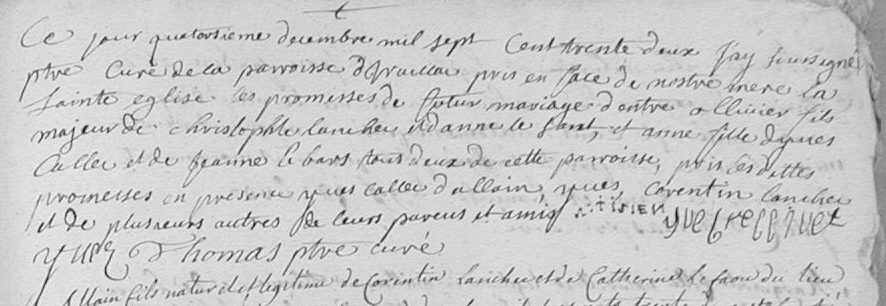 Ce jour quatorsieme decembre mil sept Cent trente deux j'ay soussigné
ptre Curé de la parroisse d'Irvillac pris en face de nostre mere la
sainte eglise les promesses de futur mariage d'entre ollivier fils
majeur de christophle lancher et d'anne le , et anne fille d'yves
Callec et de Jeanne le bars tous deux de cette parroisse, pris les dittes
promesses en presence yves callec d'allain, yves, Corentin lancher
et de plusieurs autres de leurs parens et amis
yves Thomas ptre curé
Allain fils naturel et legitime de Corentin lancher et de Catherine le faou du lieu